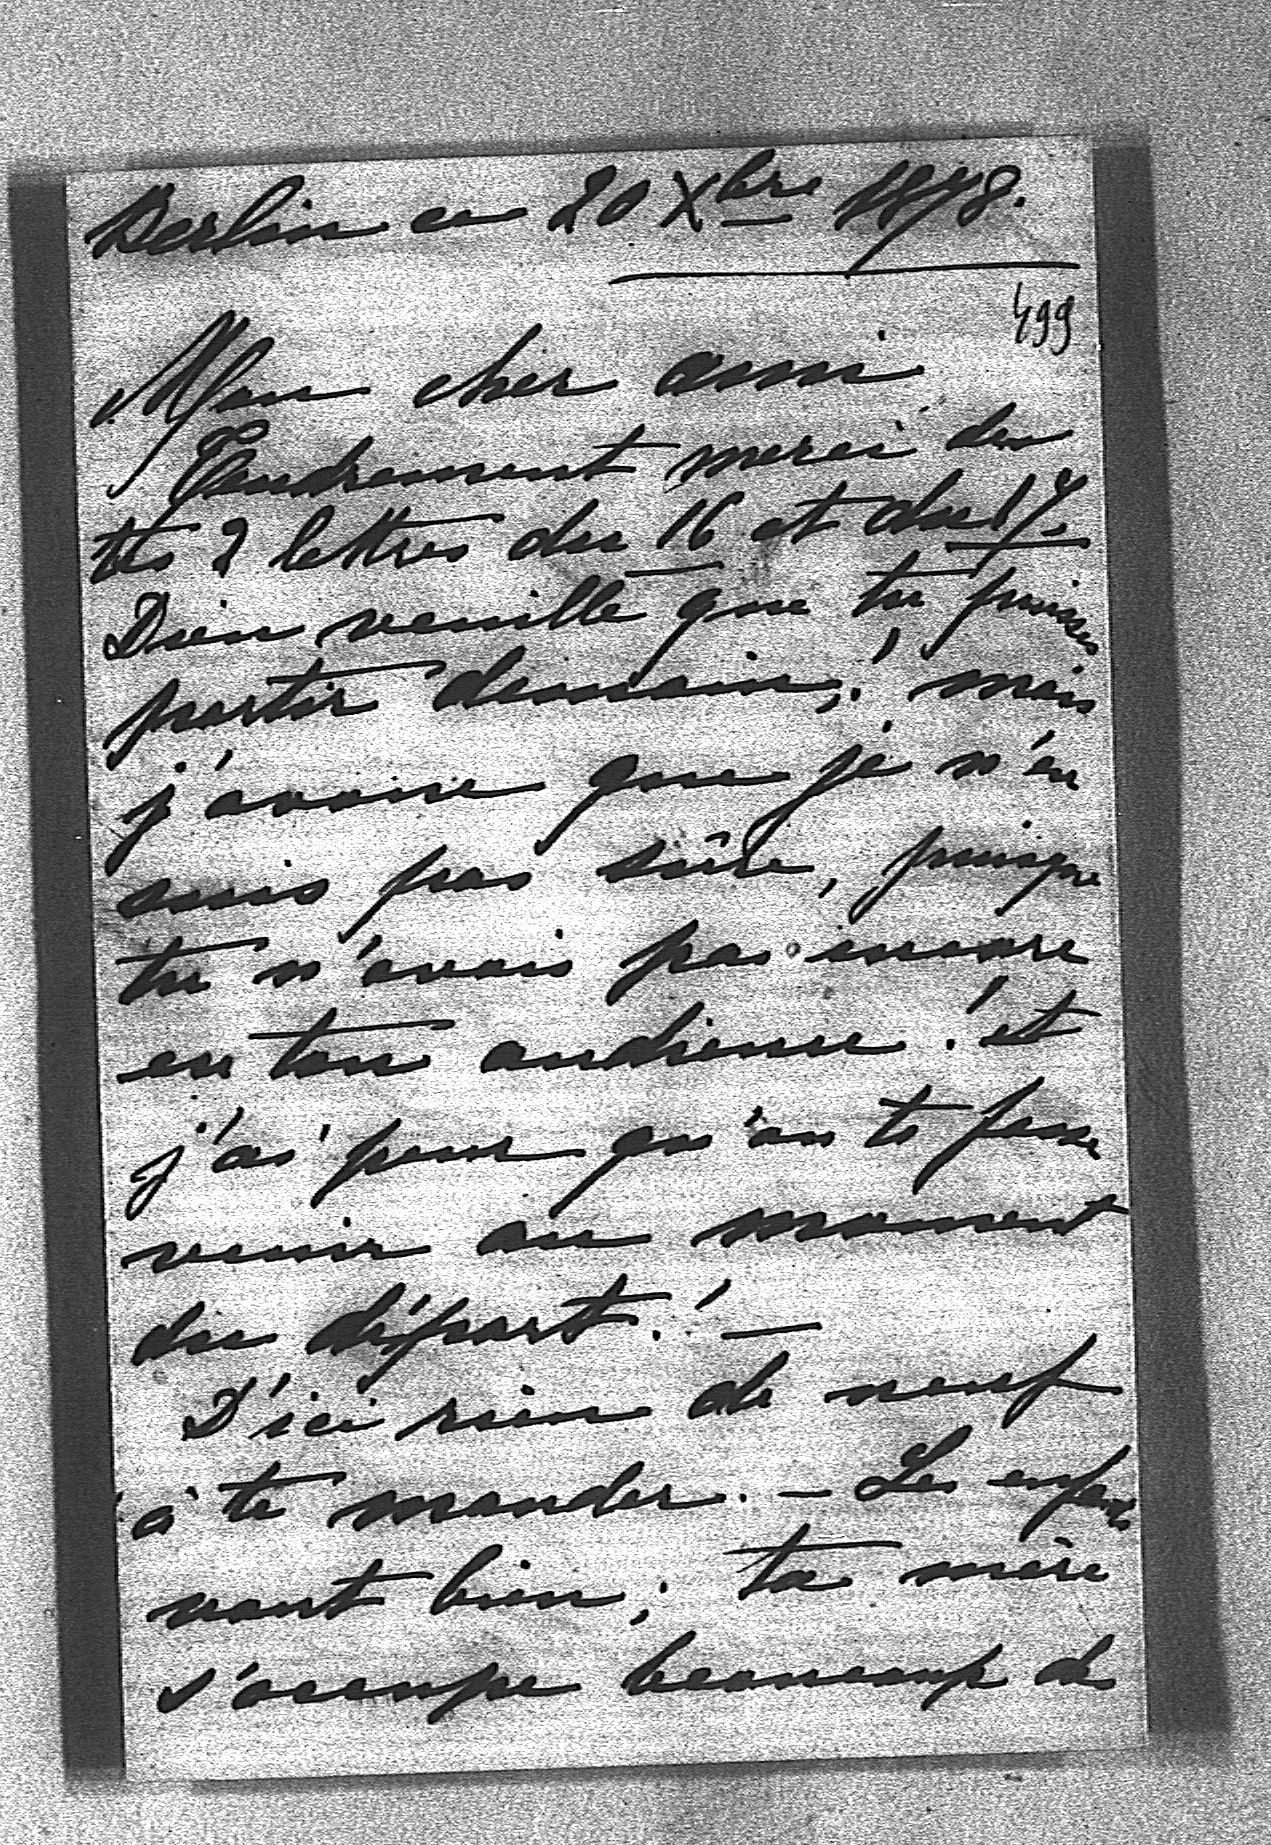 Berlin ce 20 Xbre 1878.
499
Mon cher ami
Tendrement merci de
tes 2 lettres du 16 et du 17.
Dieu veuille que tu puisses
partir demain; mais
j'avoue que je n'en
suis pas sûre, puisque
tu n'avais pas encore
eu ton audience! et
j'ai peur qu'on te fasse
venir au moment
du départ! —
D'ici rien de neuf
à te mander. — Les enfants
vont bien; ta mère
s'occupe beaucoup de